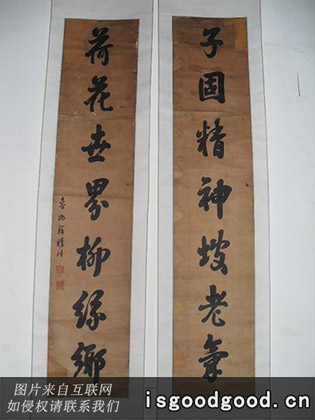 子固精神坡老氣
荷花世界柳絲鄉
图片来自互联网
如侵权请联系我们
isgoodgood.com.cn